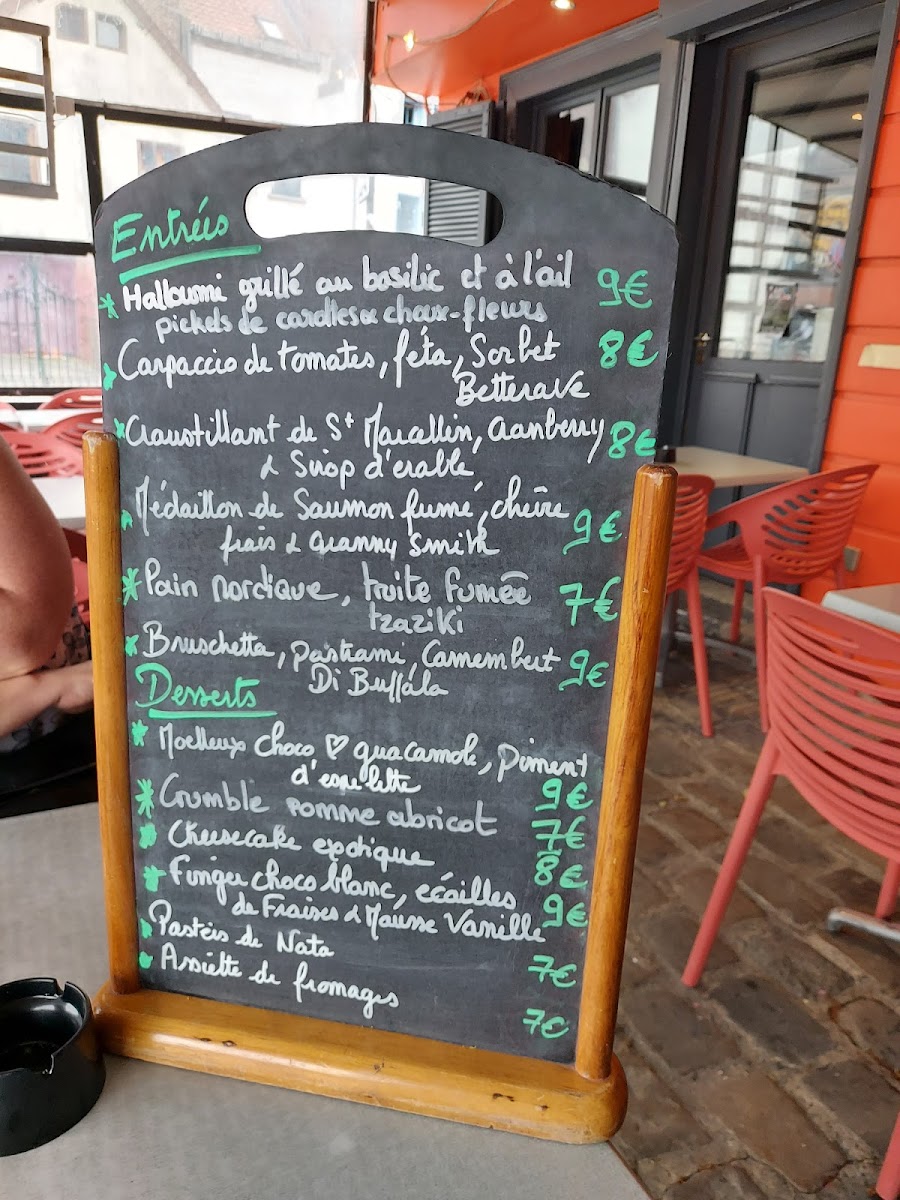 Entrées
Halloumi grillé au basilic et à l'ail 9€
pickels de carottes & choux-fleurs
Carpaccio de tomates, féta, Sorbet 8€
Betterave
Croustillant de St Marcellin, cranberry 8€
& Sirop d'érable
Médaillon de Saumon fumé, chèvre 9€
frais & Granny Smith
Pain nordique, truite fumée 7€
tzaziki
Bruschetta, pastrami, Camembert 9€
Di Buffala
Desserts
Moelleux choco ♡ guacamole, piment
d'espelette 9€
Crumble pomme abricot 7€
Cheesecake exotique 8€
Finger choco blanc, écailles
de Fraises & Mousse Vanille 9€
Pasteis de Nata 7€
Assiette de fromages 7€